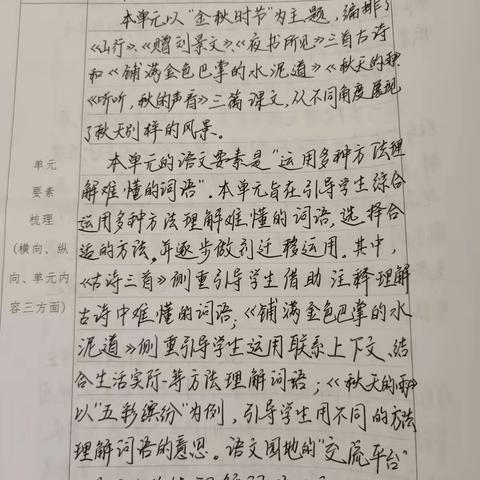 本单元以“金秋时节”为主题，编排了
《山行》、《赠刘景文》、《夜书所见》三首古诗
和《铺满金色巴掌的水泥道》《秋天的雨》
《听听，秋的声音》三篇课文，从不同角度展现
了秋天别样的风景。
单元
要素
梳理
(横向、纵
向、单元内
容三方面)
本单元的语文要素是“运用多种方法理
解难懂的词语”。本单元旨在引导学生综合
运用多种方法理解难懂的词语，选择合
适的方法，并逐步做到迁移运用。其中，
《古诗三首》侧重引导学生借助注释理解
古诗中难懂的词语；《铺满金色巴掌的水
泥道》侧重引导学生运用联系上下文、结
合生活实际等方法理解词语；《秋天的雨》
以“五彩缤纷”为例，引导学生用不同的方法
理解词语的意思。语文园地的“交流平台”